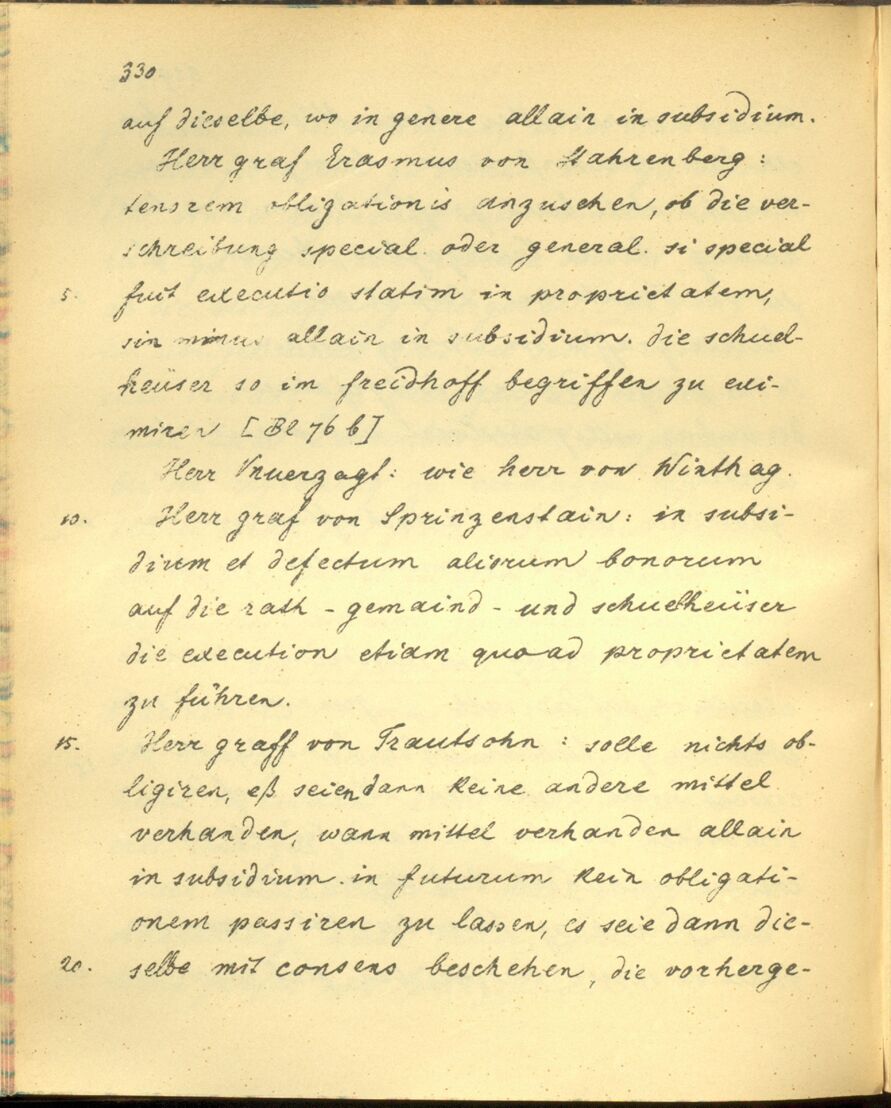 330
auf dieselbe, wo in genere allain in subsidium.
Herr graf Erasmus von Stahrenberg:
tenorem obligationis anzusehen, ob die ver-
schreibung special oder general. si special
5. fuit executio statim in proprietatem,
sin minus allain in subsidium. die schuel-
heüser so im freidhoff begriffen zu exi-
miren [Bl 76 b]
Herr Vnuerzagt: wie herr von Winthag.
10. Herr graf von Sprinzenstain: in subsi-
dium et defectum aliorum bonorum
auf die rath- gemaind- und schuelheüser
die execution etiam quoad proprietatem
zu führen.
15. Herr graff von Trautsohn: solle nichts ob-
ligiren, eß seien dann keine andere mittel
verhanden, wann mittel verhanden allain
in subsidium. in futurum kein obligati-
onem passiren zu lassen, es seie dann die-
20. selbe mit consens beschehen, die vorherge-